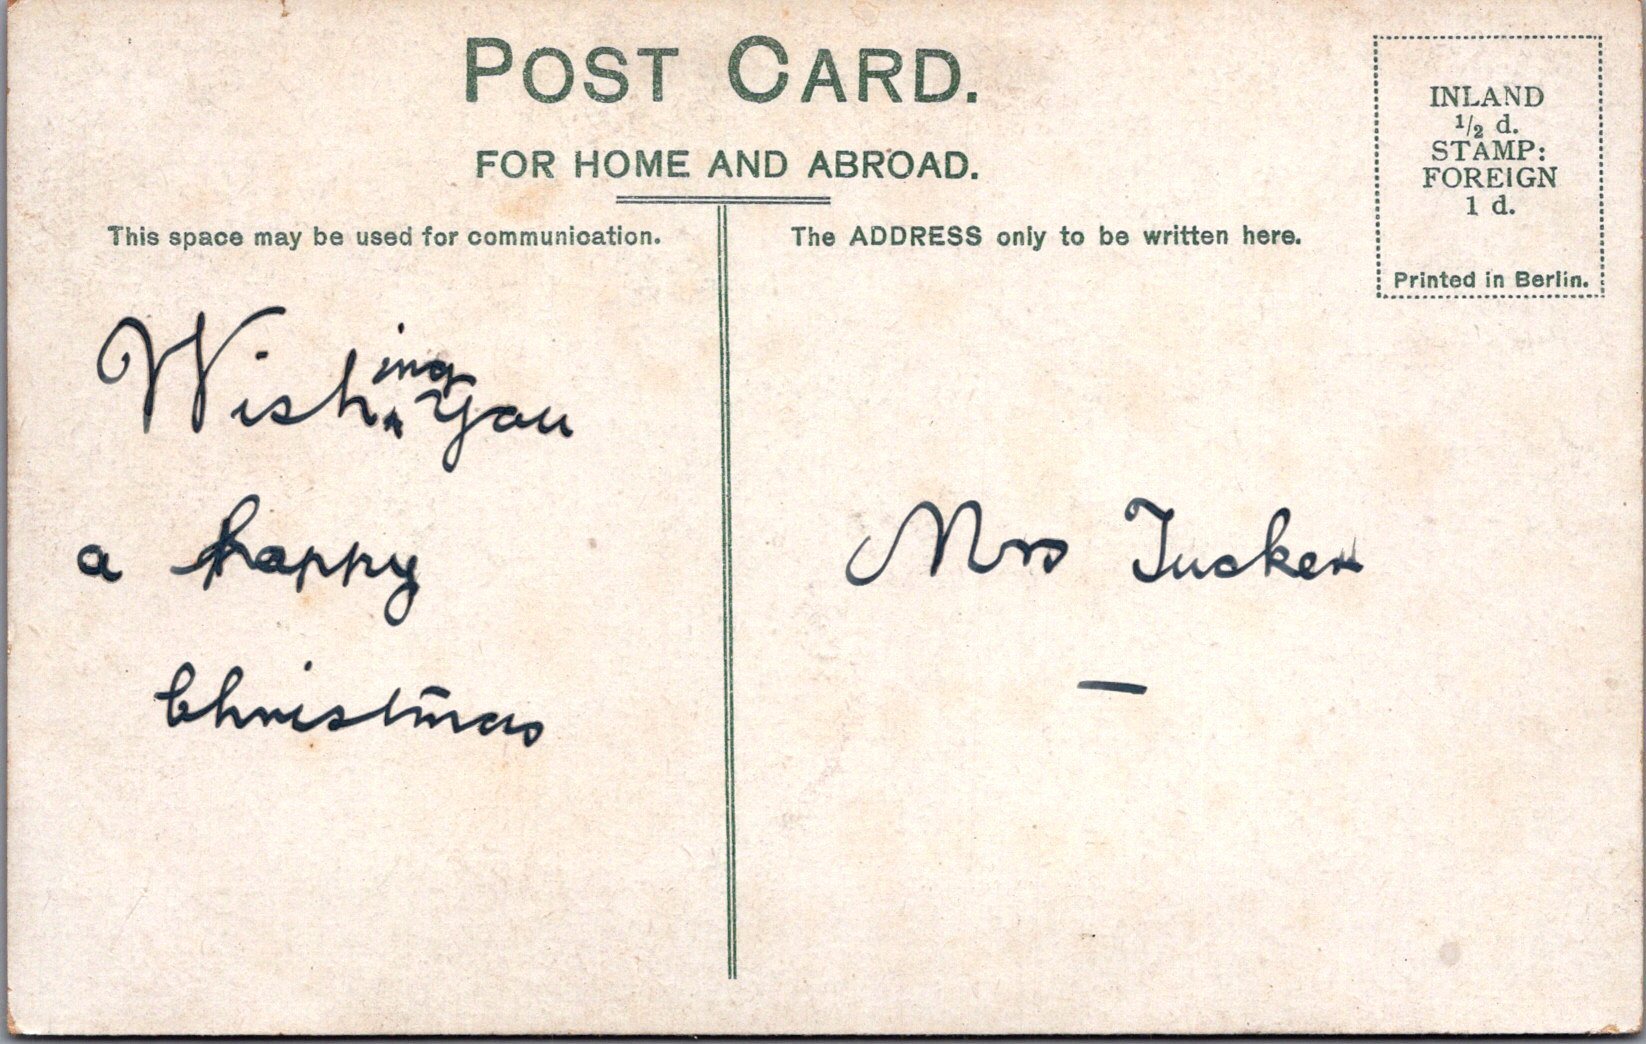 POST CARD.
FOR HOME AND ABROAD.
This space may be used for communication.
The ADDRESS only to be written here.
INLAND
1/2 d.
STAMP:
FOREIGN
1 d.
Printed in Berlin.
Wishing You
a happy
Christmas
Mrs Tucker